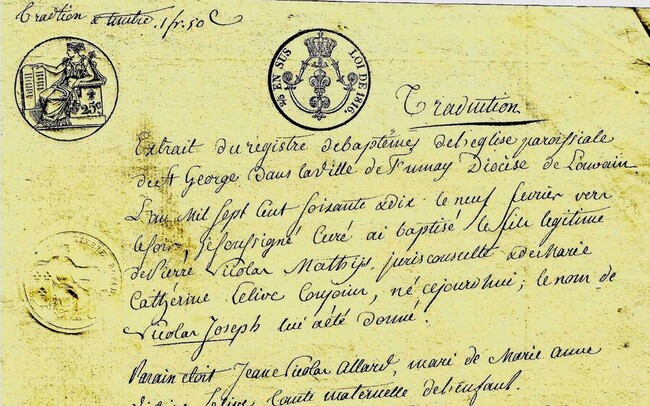 Tradtion x timbre. 1 fr. 50 C
25 c
25 EN SUS LOI DE 1816.
Traduition
Extrait du registre de baptêmes de l'eglise paroissiale
de St George dans la ville de Fumay Diocèse de Louvain
L'an Mil Sept Cent Soixante & dix le neuf fevrier vers
le soir, je soussigné Curé ai baptisé le fils legitime
de Pierre Nicolas Mathijs, jurisconsulte & de Marie
Cathérine Lelive Conjoin, né cejourdhui; le nom de
Nicolas Joseph lui a été donné.
Parain étoit Jean Nicolas Allard, mari de Marie anne
Lelive, tante maternelle de l'enfant.